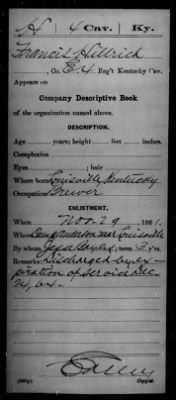 H 4 Cav. Ky.
Francis Hillrich
, Co. E, 4 Reg't Kentucky Cav.
Appears on
Company Descriptive Book
of the organization named above.
DESCRIPTION.
Age years; height feet inches.
Complexion
Eyes ; hair
Where born Louisville, Kentucky
Occupation Brewer
ENLISTMENT.
When Nov. 29, 1861.
Where Camp Anderson near Louisville
By whom Jesse Bayles; term 3 y'rs.
Remarks: Discharged by ex-
piration of service Dec
64.
Copyist.